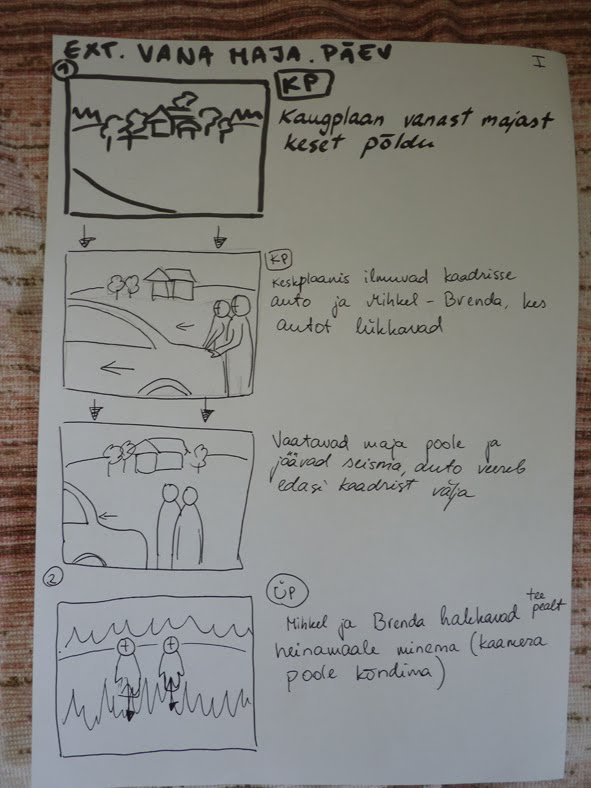 EXT. VANA MAJA. PÄEV
I
1
KP
Kaugplaan vanast majast
keset põldu
KP
Keskplaanis ilmuvad kaadrisse
auto ja Mihkel - Brenda, kes
autot lükkavad
Vaatavad maja poole ja
jäävad seisma, auto veereb
edasi kaadrist välja
2
ÜP
Mihkel ja Brenda hakkavad tee pealt
heinamaale minema (kaamera
poole kõndima)